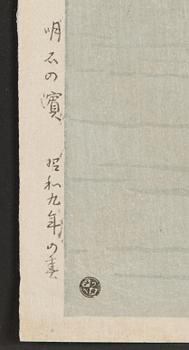 明石の濱 昭和九年の夏